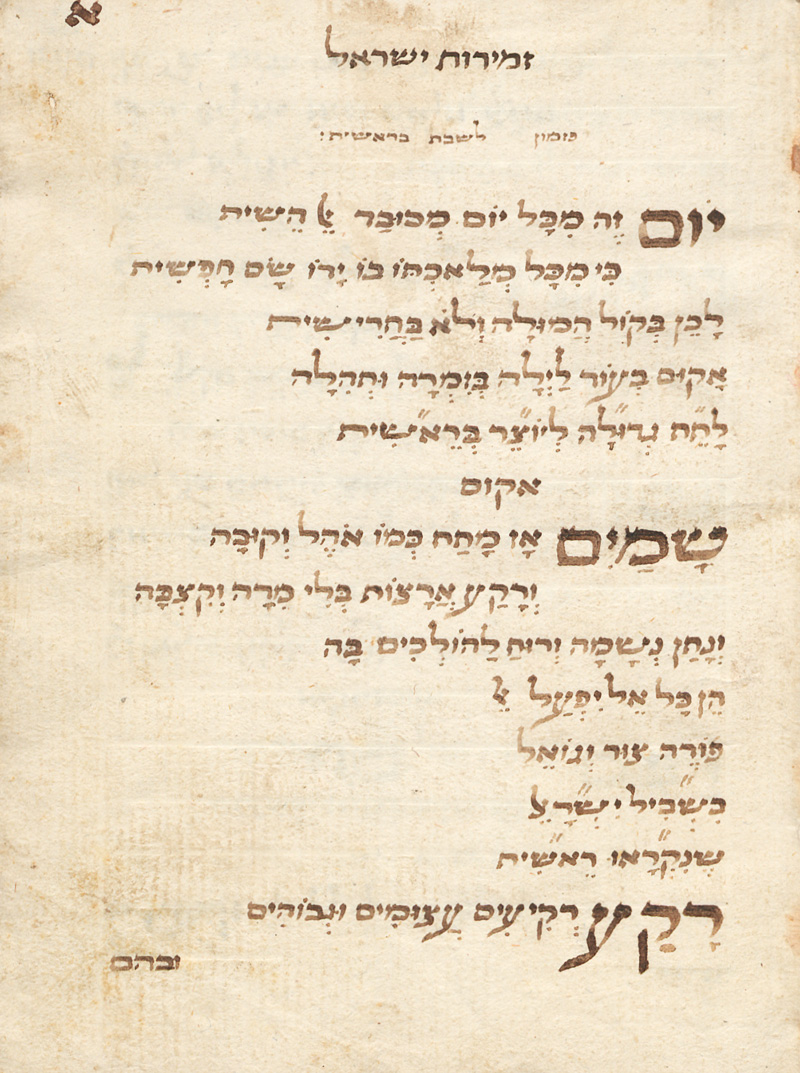 א
זמירות ישראל
פזמון לשבת בראשית:
יוֹם זֶה מִכָּל יוֹם מְכוּבַּד אֵל הֵשִׁית
כִּי מִכָּל מְלַאכְתּוֹ בּוֹ יָדוֹ שָׂם חָפְשִׁית
לָכֵן בְּקוֹל הֲמוּלָה וְלֹא בַּחֲרִישִׁית
אָקוּם בְּעוֹד לַיְלָה בְּזִמְרָה וּתְהִלָה
לָתֵת גְדוּלָה לְיוֹצֵר בְּרֵאשִׁית
אקום
שָׁמַיִם אָז מָתַח כְּמוֹ אֹהֶל וְקוּבָּה
וְרָקַע אֲרָצוֹת בְּלִי מִדָה וְקִצְבָּה
וְנָתַן נְשָׁמָה וְרוּחַ לַהוֹלְכִים בָּהּ
הֵן כָּל אֵל יִפְעַל אֵל
פּוֹדֶה צוּר וְגוֹאֵל
בִּשְׁבִיל יִשְׂרָאֵל
שֶׁנִקְרָאוּ רֵאשִׁית
רָקַע רְקִיעִים עֲצוּמִים וּגְבוֹהִים
ובהם